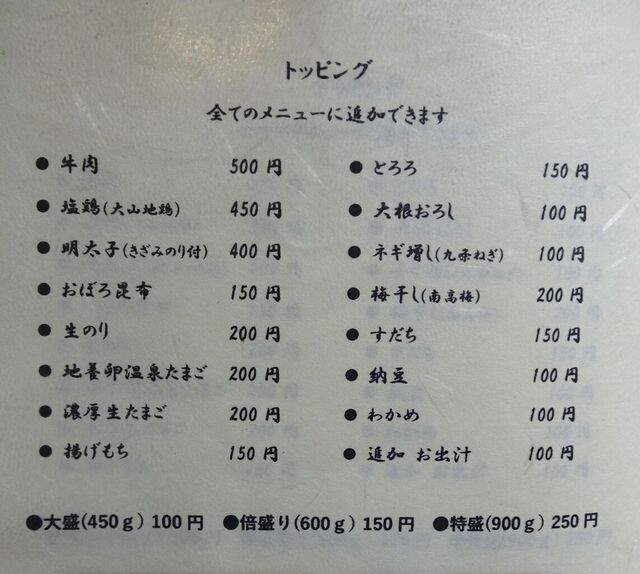 トッピング
全てのメニューに追加できます
●牛肉 500円
●塩鶏(大山地鶏) 450円
●明太子(きざみのり付) 400円
●おぼろ昆布 150円
●生のり 200円
●地養卵温泉たまご 200円
●濃厚生たまご 200円
●揚げもち 150円
●とろろ 150円
●大根おろし 100円
●ネギ増し(九条ねぎ) 100円
●梅干し(南高梅) 200円
●すだち 150円
●納豆 100円
●わかめ 100円
●追加 お出汁 100円
●大盛(450g) 100円 ●倍盛り(600g) 150円 ●特盛(900g) 250円